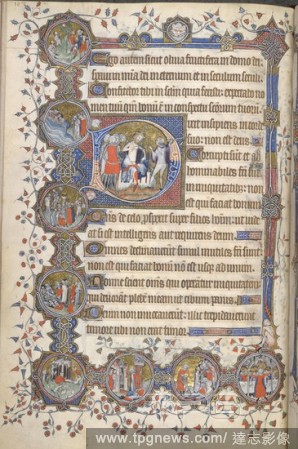 Ego autem sicut oliua fructifera in domo dei
spaui in mia dei in eternum et in seculum seculi
Confitebor tibi in sclm quia fecisti: expectabo no
men tuum qm bonū ē in conspectu scōrum tuorū
xit insipiens in corde
suo: non est deus.
Corrupti sūt et ab
hominabiles facti sūt
in iniquitatib; non
est qui faciat bonū
Deus de celo pspexit super filios hōinū: ut uide
at si est intelligens aut requirens deum
Omnes declinauerunt simul inutiles facti sunt
non est qui faciat bonū nō est usq; ad unum.
Nonne scient oms qui opantur iniquitatem
qui deuorant plebē meam ut cibum panis
Deum non inuocauerunt: illic trepidauerunt
timore ubi non erat timor.
www.tpgnews.com/ 達志影像